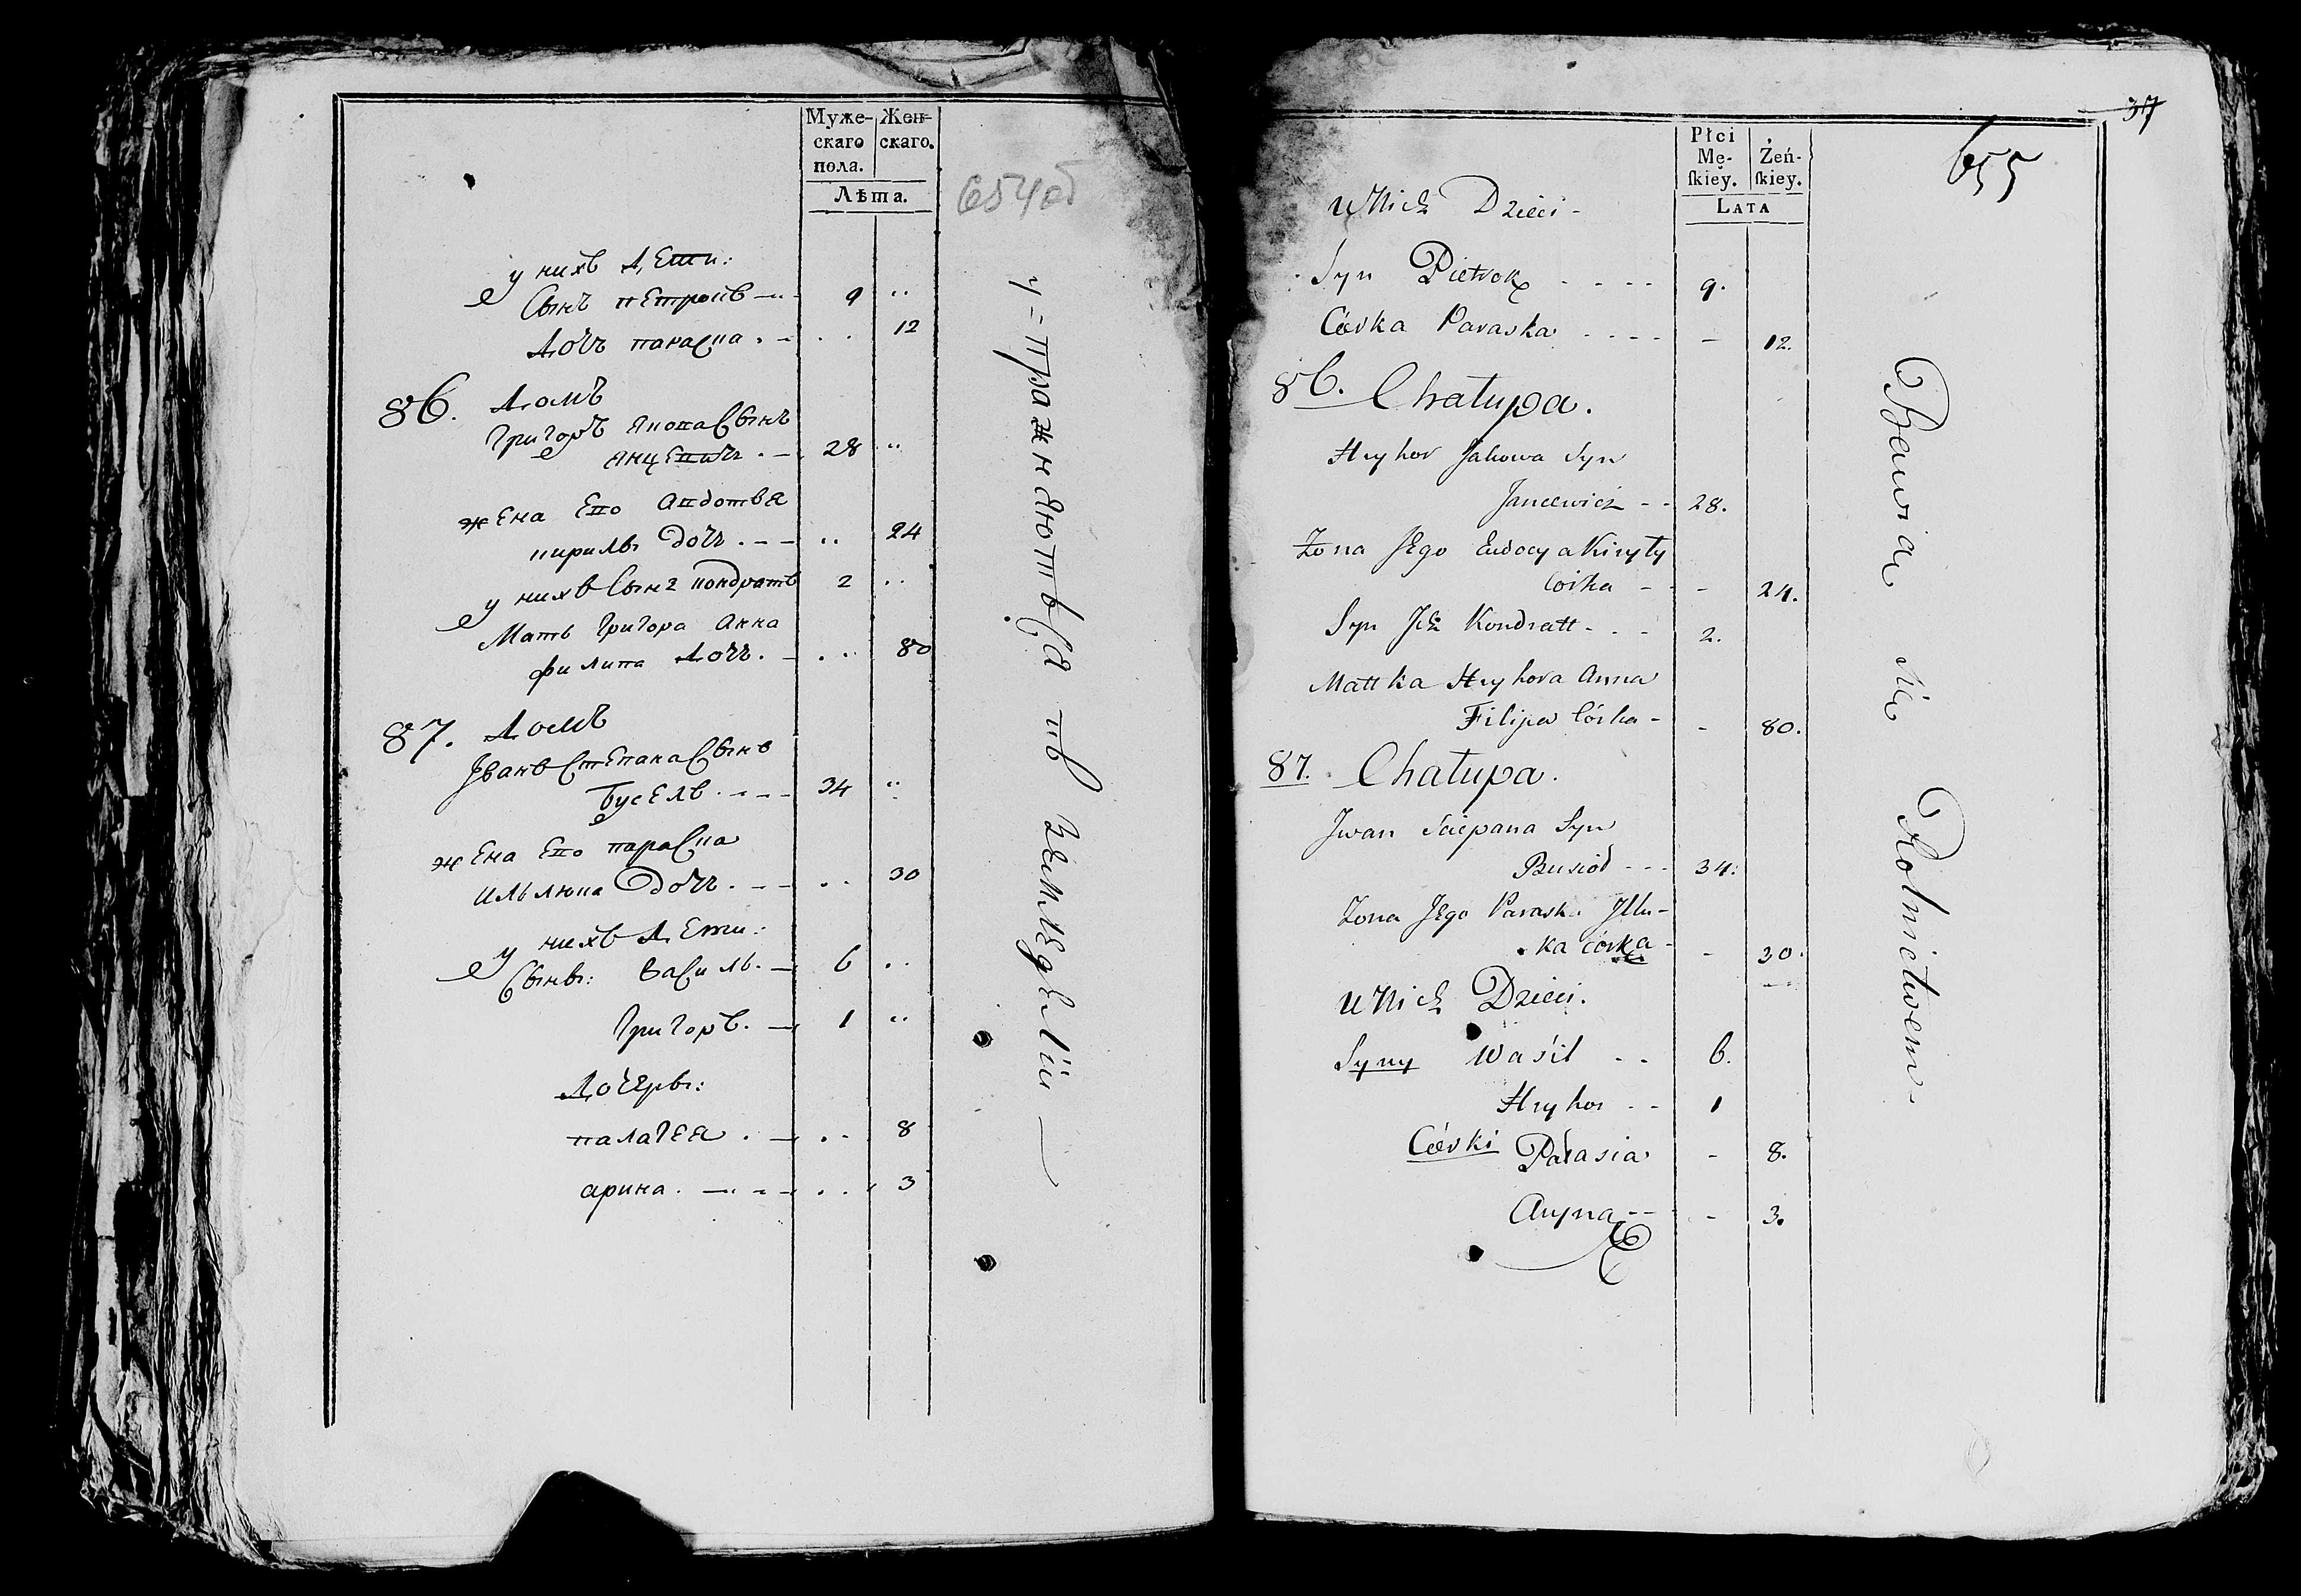 Муже-
скаго
пола.
Жен-
скаго.
Лѣта.
654об
у нихъ дети:
Сынъ петрокъ 9 "
дочъ параска . . 12
86. домъ
Григоръ якова Сынъ
янцевичъ . 28 "
жена его авдотья
кирилы дочъ . . . 24
у нихъ Сынъ кондратъ 2 . .
Мать Григора анна
филипа дочъ . . . 80
87. домъ
Іванъ Степана Сынъ
Буселъ . 34 "
жена его параска
ильлюка дочъ . . . 30
у нихъ дети:
Сыны: Василь . 6 . .
Григоръ . 1 "
дочеры:
палагея . . . 8
арина . . . 3
упражняются въ земледеліи
37
655
Płci
Mę-
skiey.
Żeń-
skiey.
LATA
U Nich Dzieci -
Syn Pietrok . . . . 9.
Córka Paraska . . . . - 12.
86. Chałupa.
Hryhor Jakowa Syn
Jancewicz - - 28.
Żona Jego Eudocya Kiryły
Córka - - 24.
Syn Ich Kondratt - . - 2.
Mattka Hryhora Anna
Filipa Córka - - 80.
87. Chałupa.
Jwan Sciepana Syn
Busioł - - - 34.
Żona Jego Paraska Jllu-
ka córka - - 30.
U Nich Dzieci.
Syny Waśil . . 6.
Hryhor . - 1
Córki Pałasia - 8.
Aryna - - - 3.
Bawia sie Rolnictwem